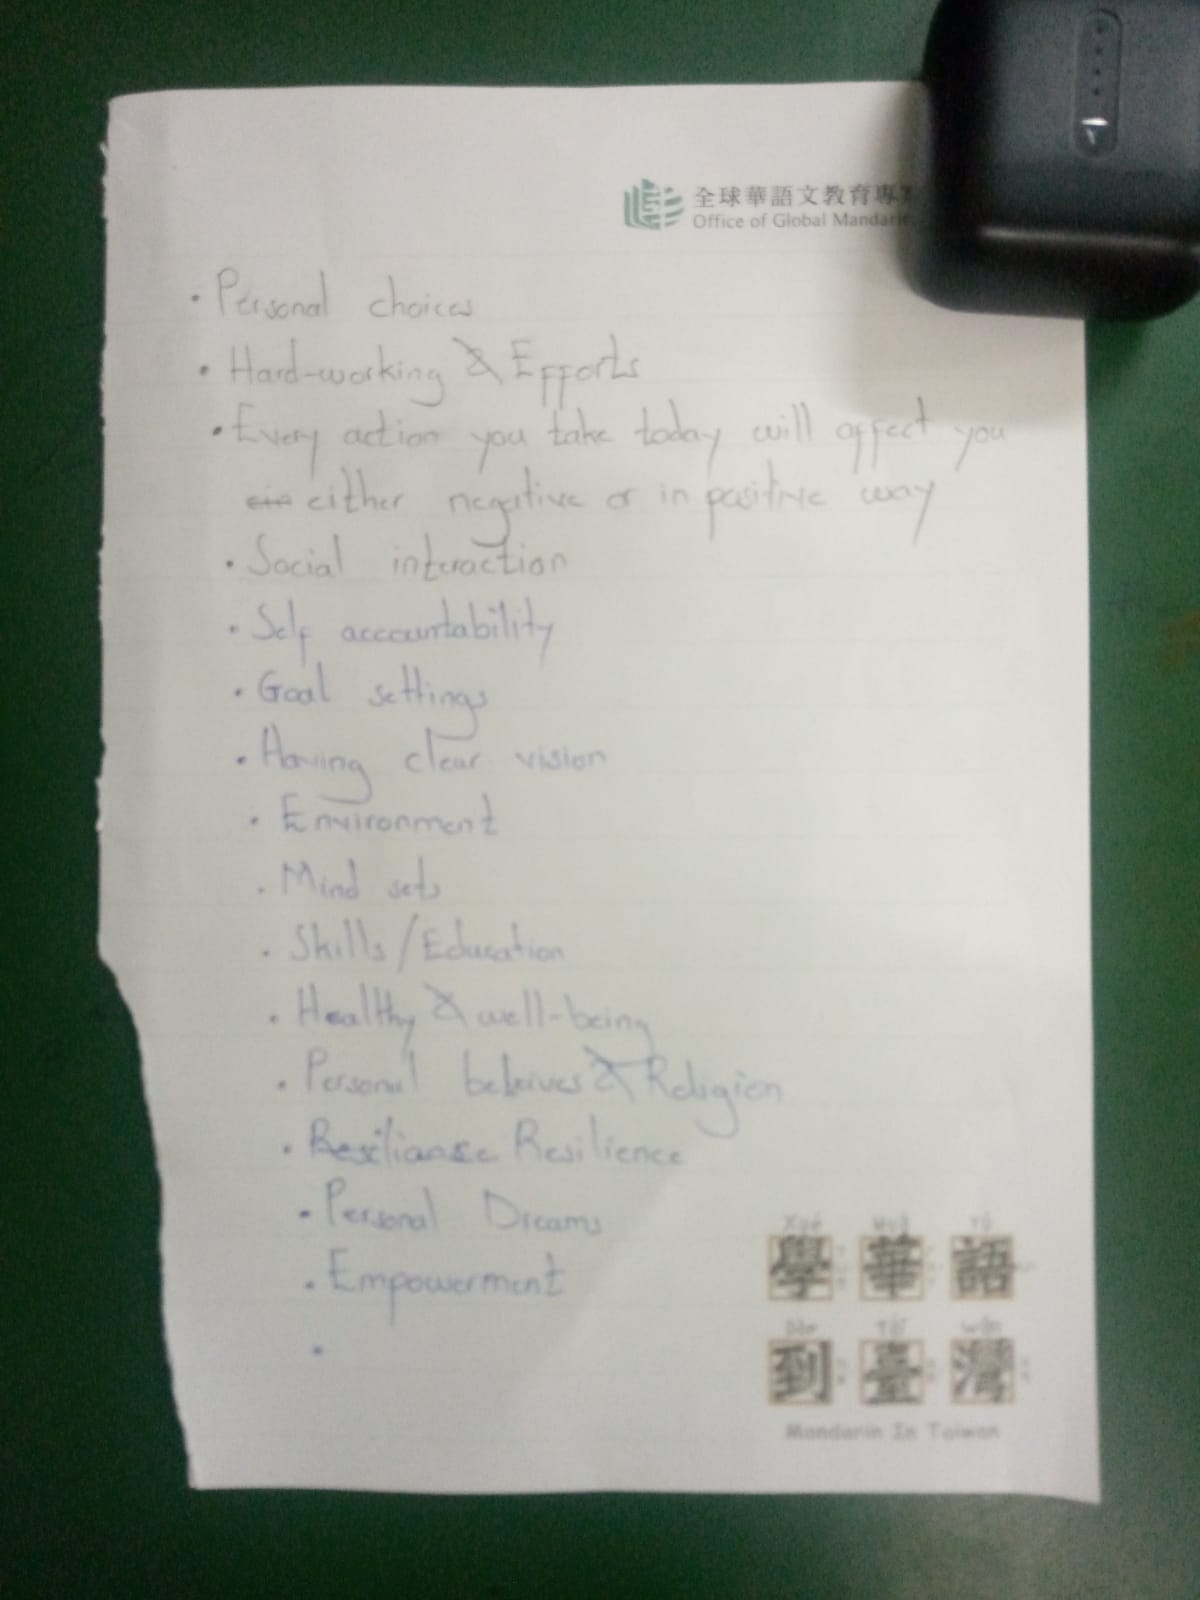 全球華語文教育專
Office of Global Mandarin
• Personal choices
• Hard-working & Efforts
• Every action you take today will affect you
either negative or in positive way
• Social interaction
• Self accountability
• Goal settings
• Having clear vision
• Environment
• Mind sets
• Skills/Education
• Healthy & well-being
• Personal beleives & Religion
• Resilianse Resilience
• Personal Dreams
• Empowerment
•
Xué Huá Yǔ
學 華 語
Dào Tái wān
到 臺 灣
Mandarin In Taiwan